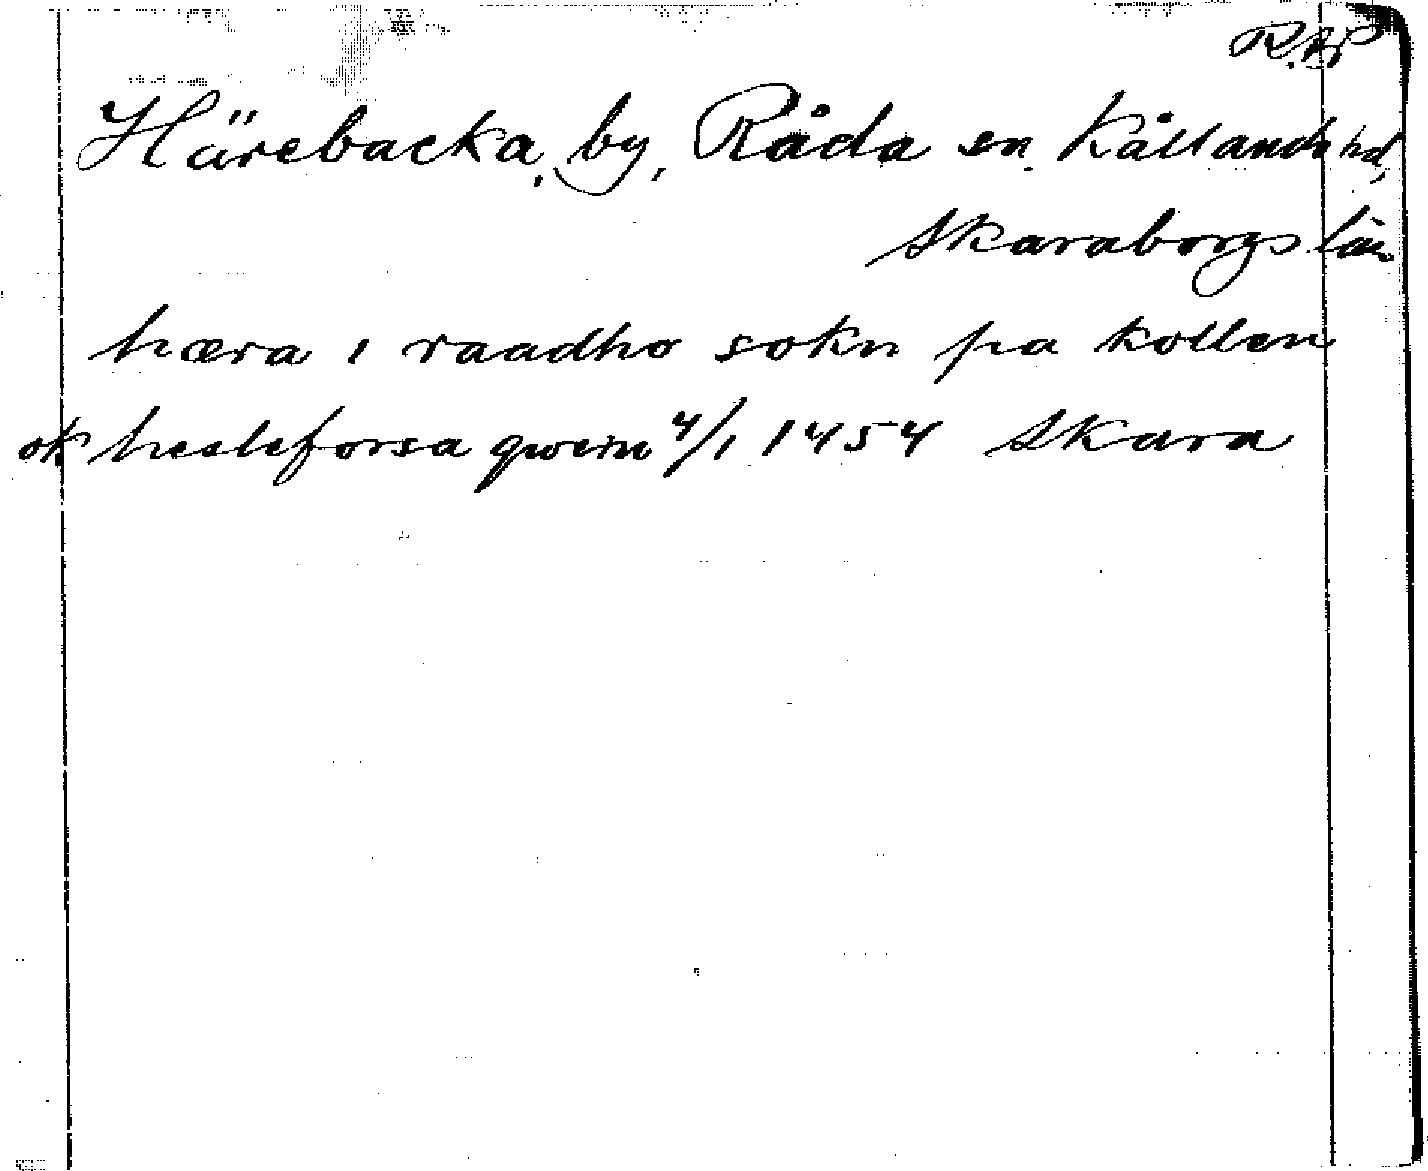 R.AP
Härebacka, by, Råda sn. Kållands hd,
Skaraborgs län.
hæra i raadho sokn pa kollen
ok hesleforsa qwern 4/1 1454 Skara